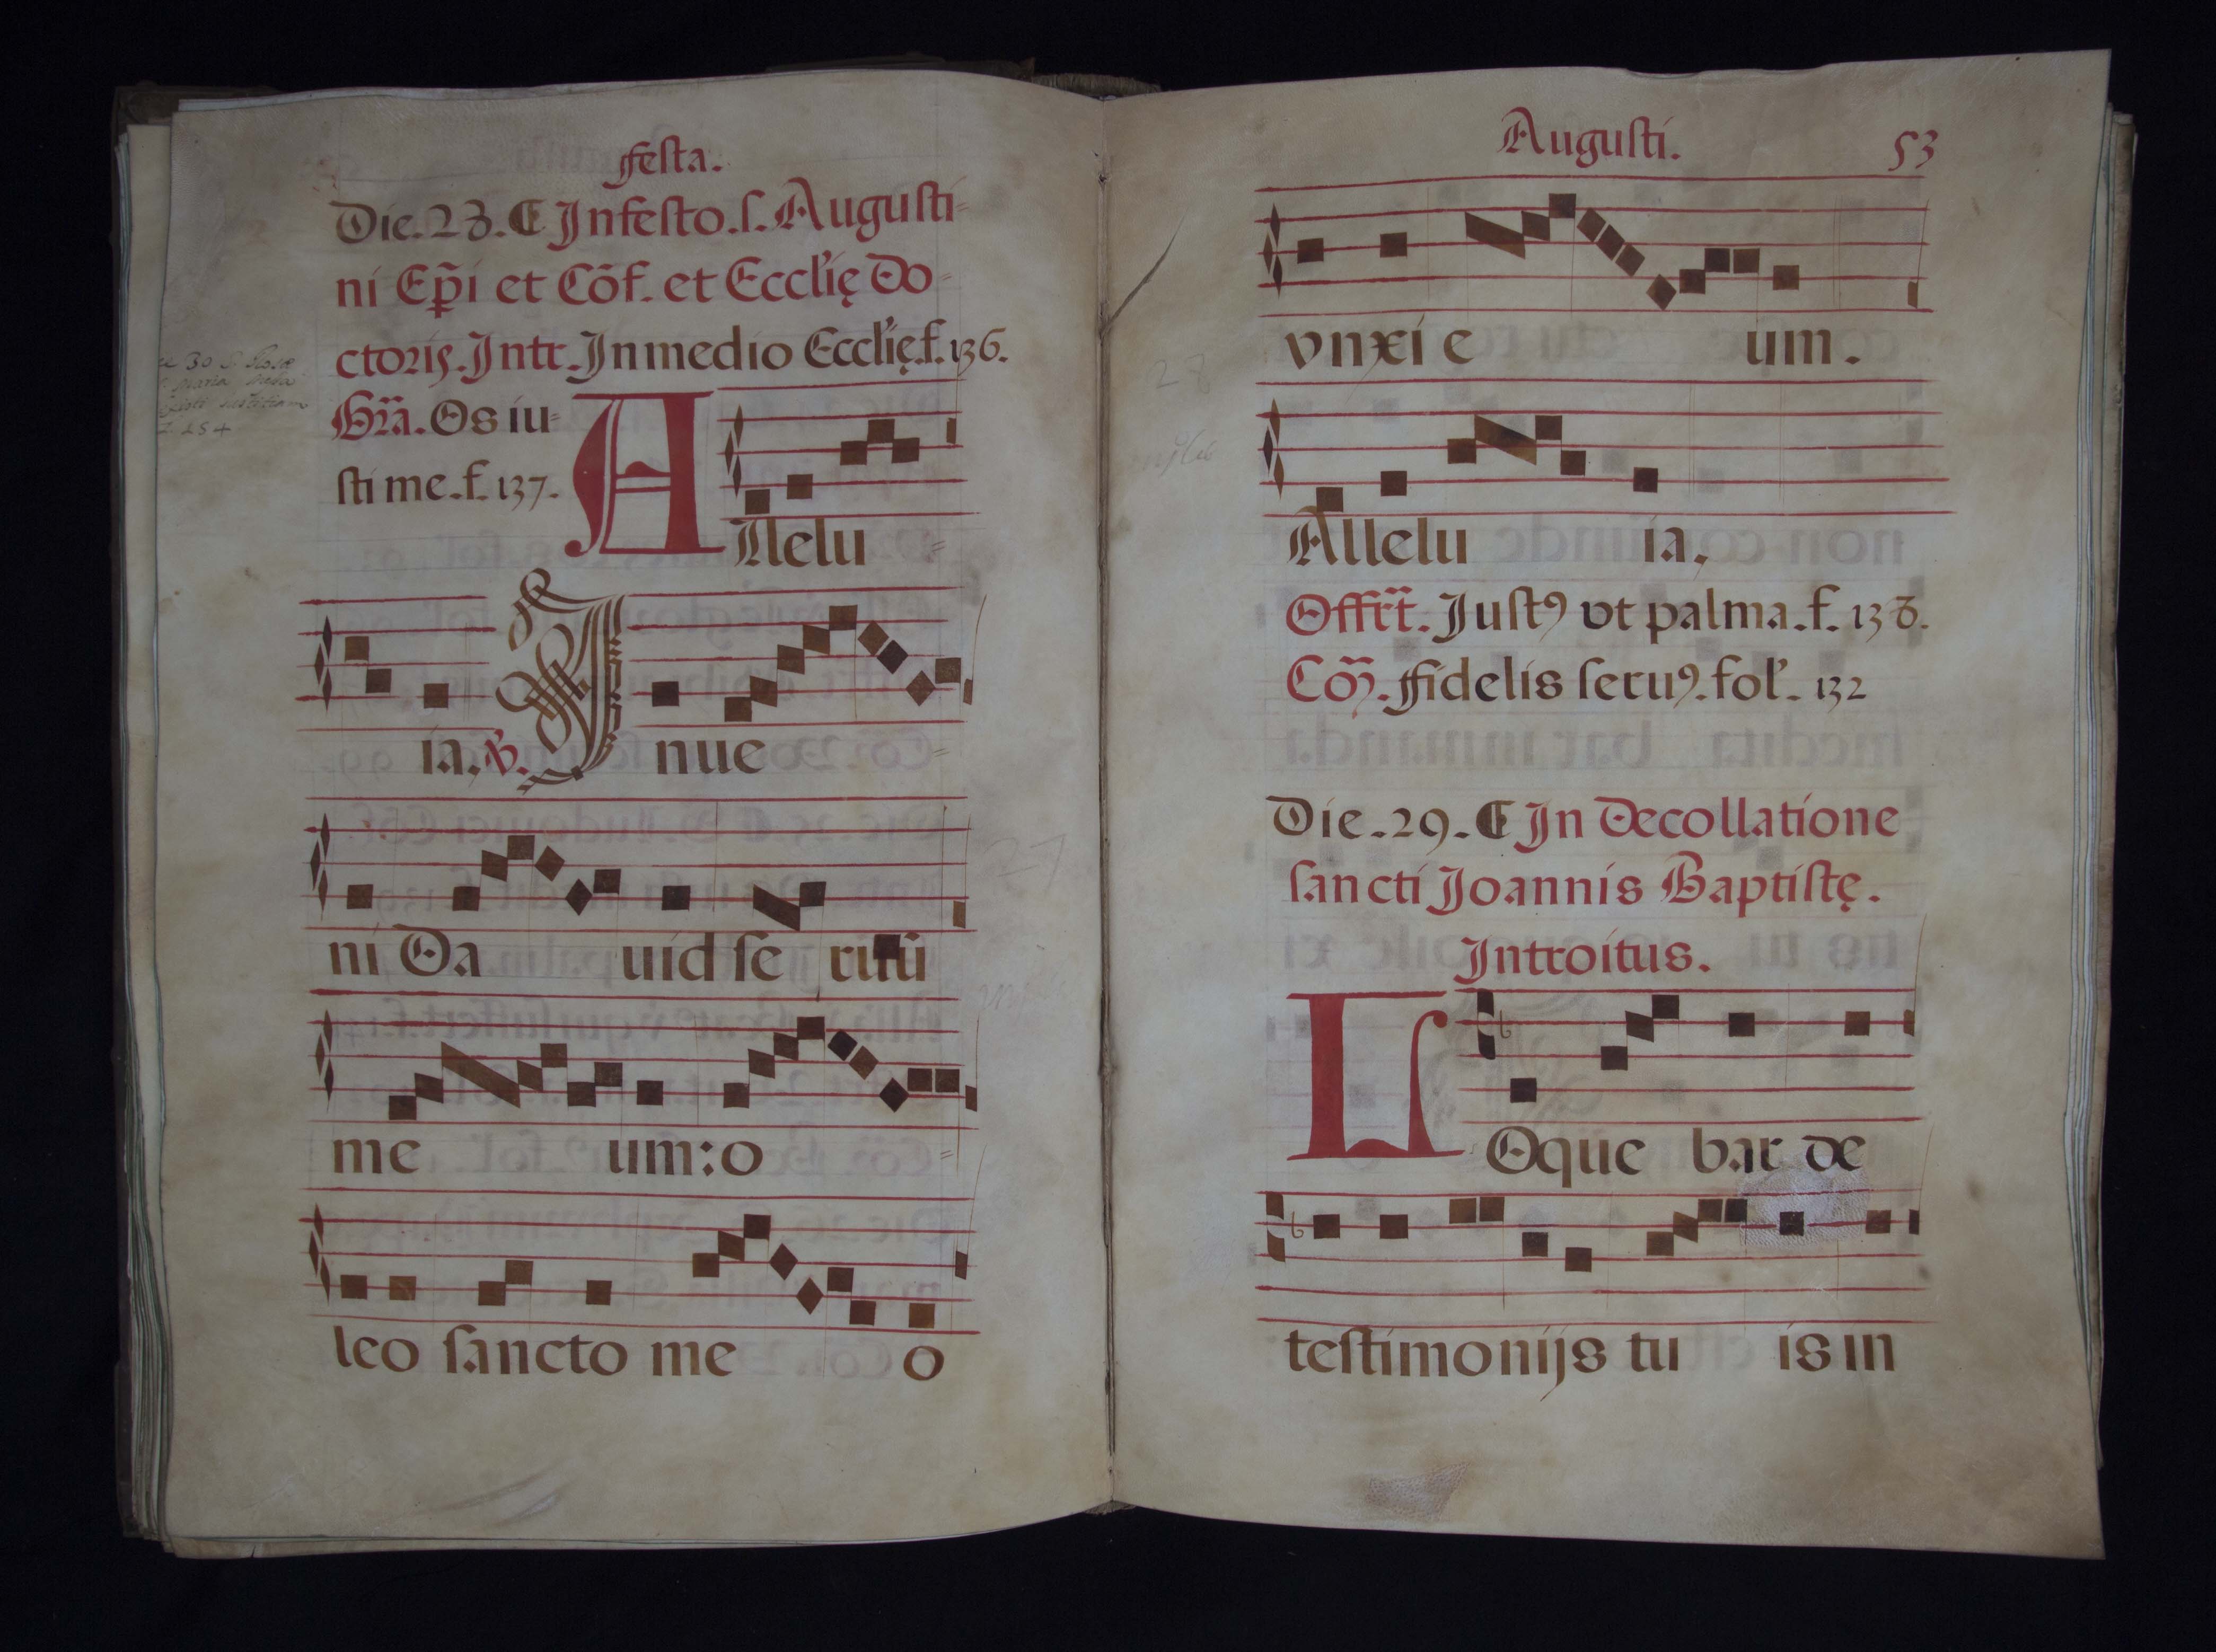 festa.
Die. 28. In festo. s. Augusti-
ni Ep̃i et Cõf. et Eccl'ię Do-
ctoris. Intr. In medio Eccl'ię. f. 136.
Gr̃a. Os iu=
sti me. f. 137.
Allelu=
ia, ℣. Inue=
ni Dauid seruũ
meum: o=
leo sancto meo
30 S. Rosæ
maria
iustitiam
Augusti. 53
vnxi eum.
Alleluia,
Offr̃t. Justꝯ vt palma. f. 138.
Cõ. fidelis seruꝯ. fol'. 132
Die. 29. In Decollatione
sancti Joannis Baptistę.
Introitus.
LOquebar de
testimonijs tuis in